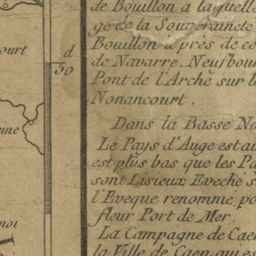 de Bouillon a laquelle
ge de la Souverainete
Bouillon après de ce
de Navarre. Neufbou
Pont de l'Arche sur l
Nonancourt.
Dans la Basse No
Le Pays d'Auge est au
est plus bas que les Pa
sont Lisieux Eveché s
l'Eveque renommé po
fleur Port de Mer.
La Campagne de Caen
la Ville de Caen qui es
court
d
50
moi